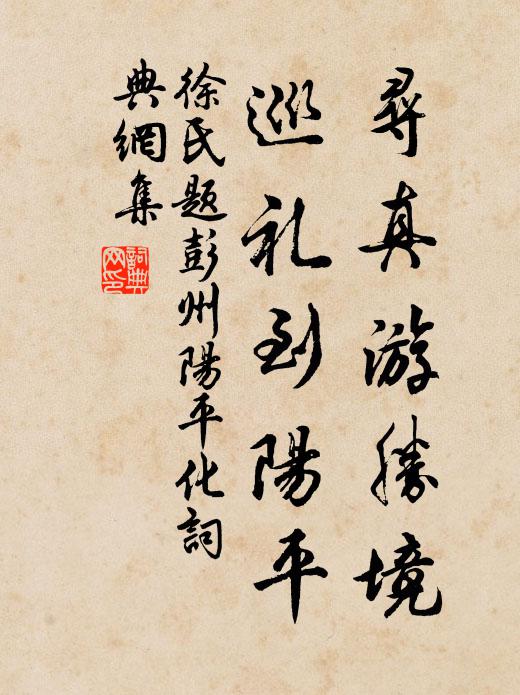 尋真游勝境
巡礼到陽平
徐氏題彭州陽平化詞
典網集
詞典
网印